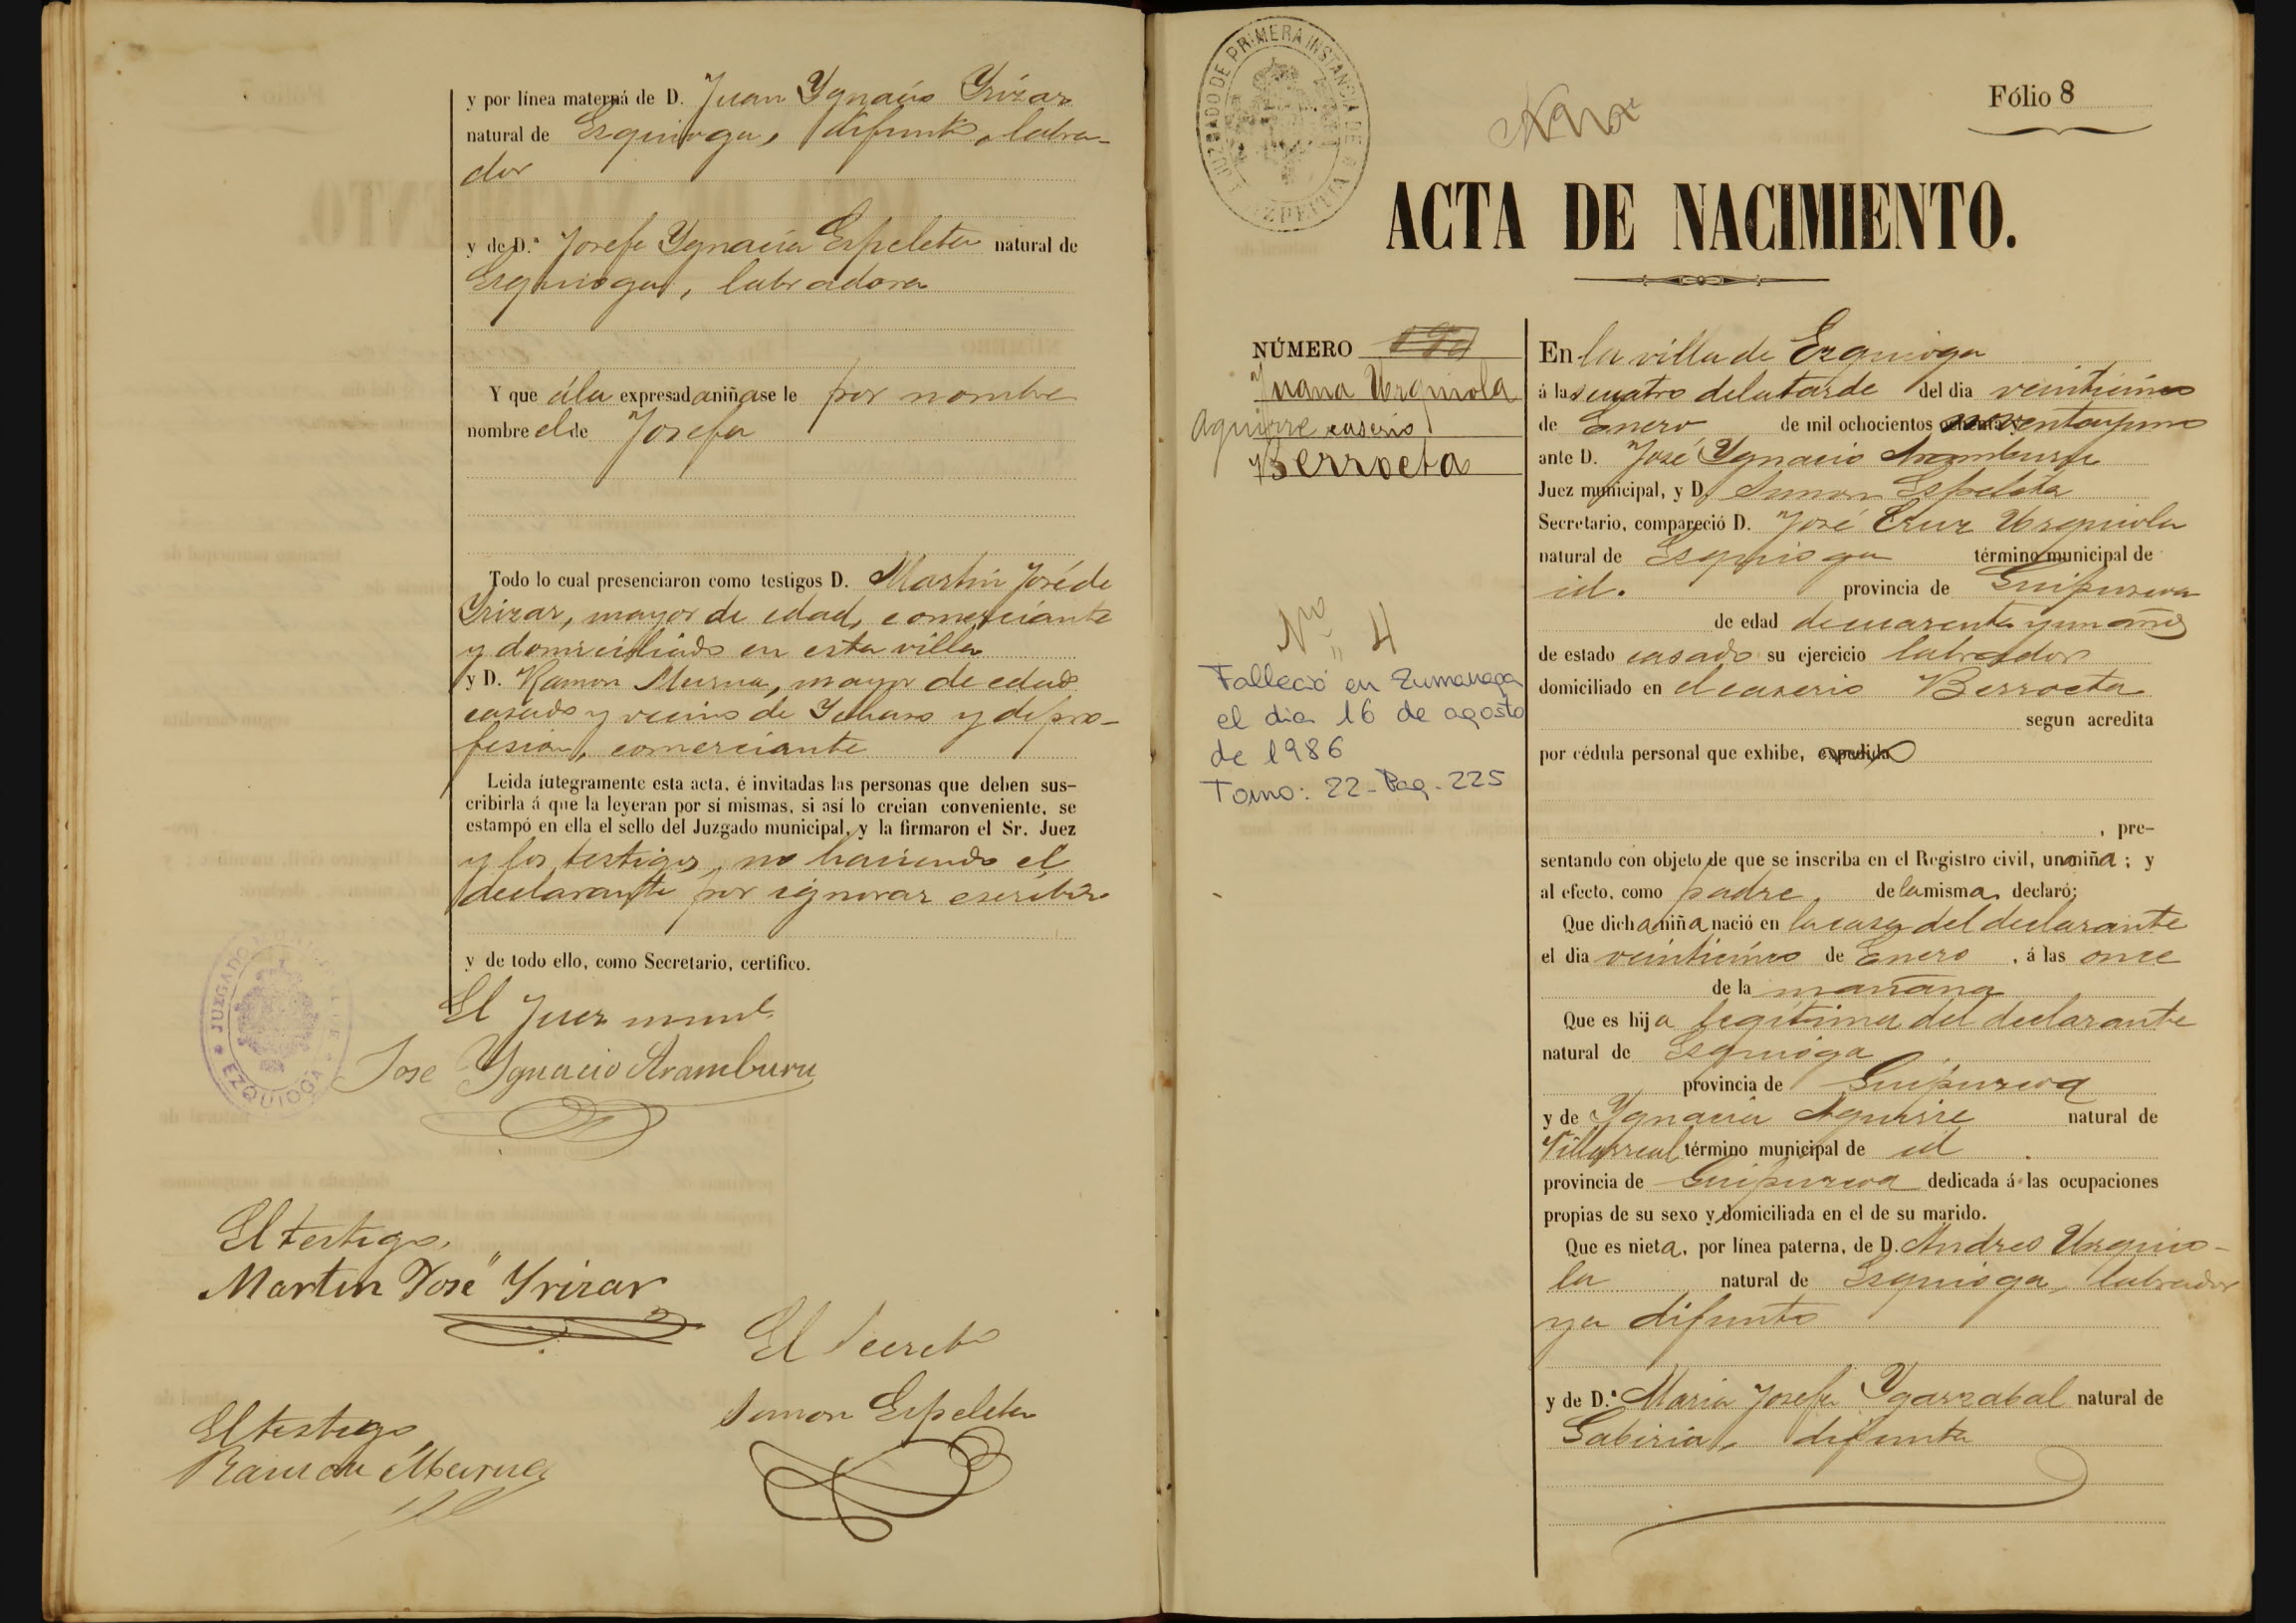 y por línea materna de D. Juan Ygnacio Yrizar
natural de Ezquioga, difunto, labra-
dor
y de D.ª Josefa Ygnacia Espeleta natural de
Ezquioga, labradora
Y que á la expresada niña se le por nombre
nombre el de Josefa
Todo lo cual presenciaron como testigos D. Martin José de
Yrizar, mayor de edad, comerciante
y domiciliado en esta villa
y D. Ramon Murua, mayor de edad
casado y vecino de Ychaso y de pro-
fesion, comerciante
Leida íntegramente esta acta, é invitadas las personas que deben sus-
cribirla á que la leyeran por sí mismas, si así lo creian conveniente, se
estampó en ella el sello del Juzgado municipal, y la firmaron el Sr. Juez
y los testigos, no haciendo el
declarante por ignorar escribir
y de todo ello, como Secretario, certifico.
El Juez munl.
Jose Ygnacio Aramburu
JUZGADO
EZQUIOGA
El testigo,
Martin José Yrizar
El Secreto
Simon Espeleta
El testigo
Ramon Murua
JUZGADO DE PRIMERA INSTANCIA DE AZPEITIA
Fólio 8
ACTA DE NACIMIENTO.
NÚMERO
Juana Urquiola
Aguirre caserio
Berroeta
Nº 4
Falleció en Zumarraga
el dia 16 de agosto
de 1986
Tomo: 22 - Pag. 225
En la villa de Ezquioga
á las cuatro de la tarde del dia veinticinco
de Enero de mil ochocientos noventa y uno
ante D. José Ygnacio Aramburu
Juez municipal, y D. Simon Espeleta
Secretario, compareció D. José Cruz Urquiola
natural de Ezquioga término municipal de
id. provincia de Guipuzcoa
de edad de cuarenta y un años
de estado casado su ejercicio labrador
domiciliado en el caserio Berroeta
segun acredita
por cédula personal que exhibe, expedida
, pre-
sentando con objeto de que se inscriba en el Registro civil, una niña; y
al efecto, como padre de la misma, declaró;
Que dicha niña nació en la casa del declarante
el dia veinticinco de Enero, á las once
de la mañana
Que es hija legítima del declarante
natural de Ezquioga
provincia de Guipuzcoa
y de Ygnacia Aguirre natural de
Villarreal término municipal de id
provincia de Guipuzcoa dedicada á las ocupaciones
propias de su sexo y domiciliada en el de su marido.
Que es nieta, por línea paterna, de D. Andres Urquio-
la natural de Ezquioga, labrador
ya difunto
y de D.ª Maria Josefa Ygarzabal natural de
Gabiria, difunta